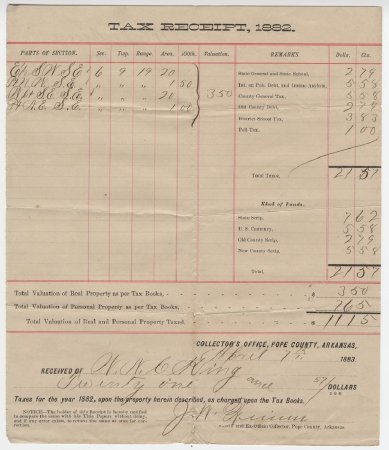 TAX RECEIPT, 1882.
PARTS OF SECTION. Sec. Twp. Range. Area. 100th. Valuation. REMARKS. Dolls. Cts.
S W S E 6 9 19 20 State General and State School, 2 79
" " " 50 Int. on Pub. Debt, and Insane Asylum, 5 58
S E S E " " " 20 350 County General Tax, 5 58
S E " " " 1 00 Old County Debt, 2 79
District School Tax, 3 83
Poll Tax, 1 00
Total Taxes, 21 57
Kind of Funds.
State Scrip, 7 62
U. S. Currency, 5 58
Old County Scrip, 2 79
New County Scrip, 5 58
Total, 21 57
Total Valuation of Real Property as per Tax Books, $ 350
Total Valuation of Personal Property as per Tax Books, 765
Total Valuation of Real and Personal Property Taxed. $ 1115
COLLECTOR'S OFFICE, POPE COUNTY, ARKANSAS,
April 1883.
RECEIVED OF King
Twenty one and 57/100 DOLLARS
Taxes for the year 1882, upon the property herein described, as charged upon the Tax Books.
NOTICE.—The holder of this Receipt is hereby notified
to compare the same with his Title Papers without delay,
and if any error exists, to return the same at once for correction.
J. W.
Sheriff and Ex-Officio Collector, Pope County, Arkansas.